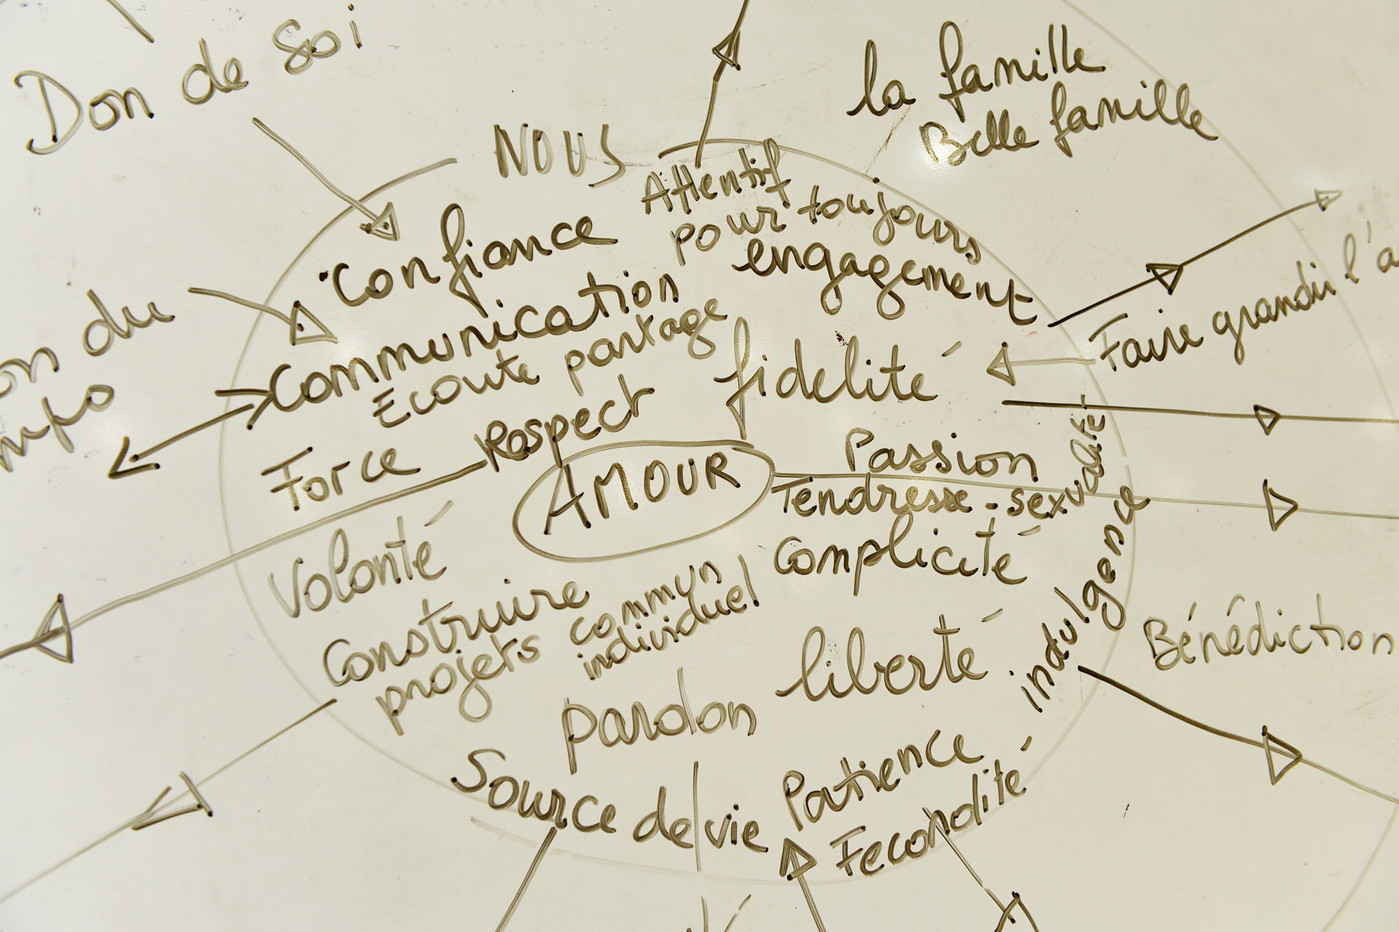 Don de Soi
la famille
Belle famille
NOUS
Attentif
pour toujours
engagement
confiance
communication
Ecoute partage
Faire grandir l'a
on du
fidélité
Respect
Force
AMOUR
Passion
Tendresse - sexualité
complicité
indulgence
Volonté
Construire
projets commun
individuel
liberté
Bénédiction
pardon
Source de vie
Patience
Fecondité